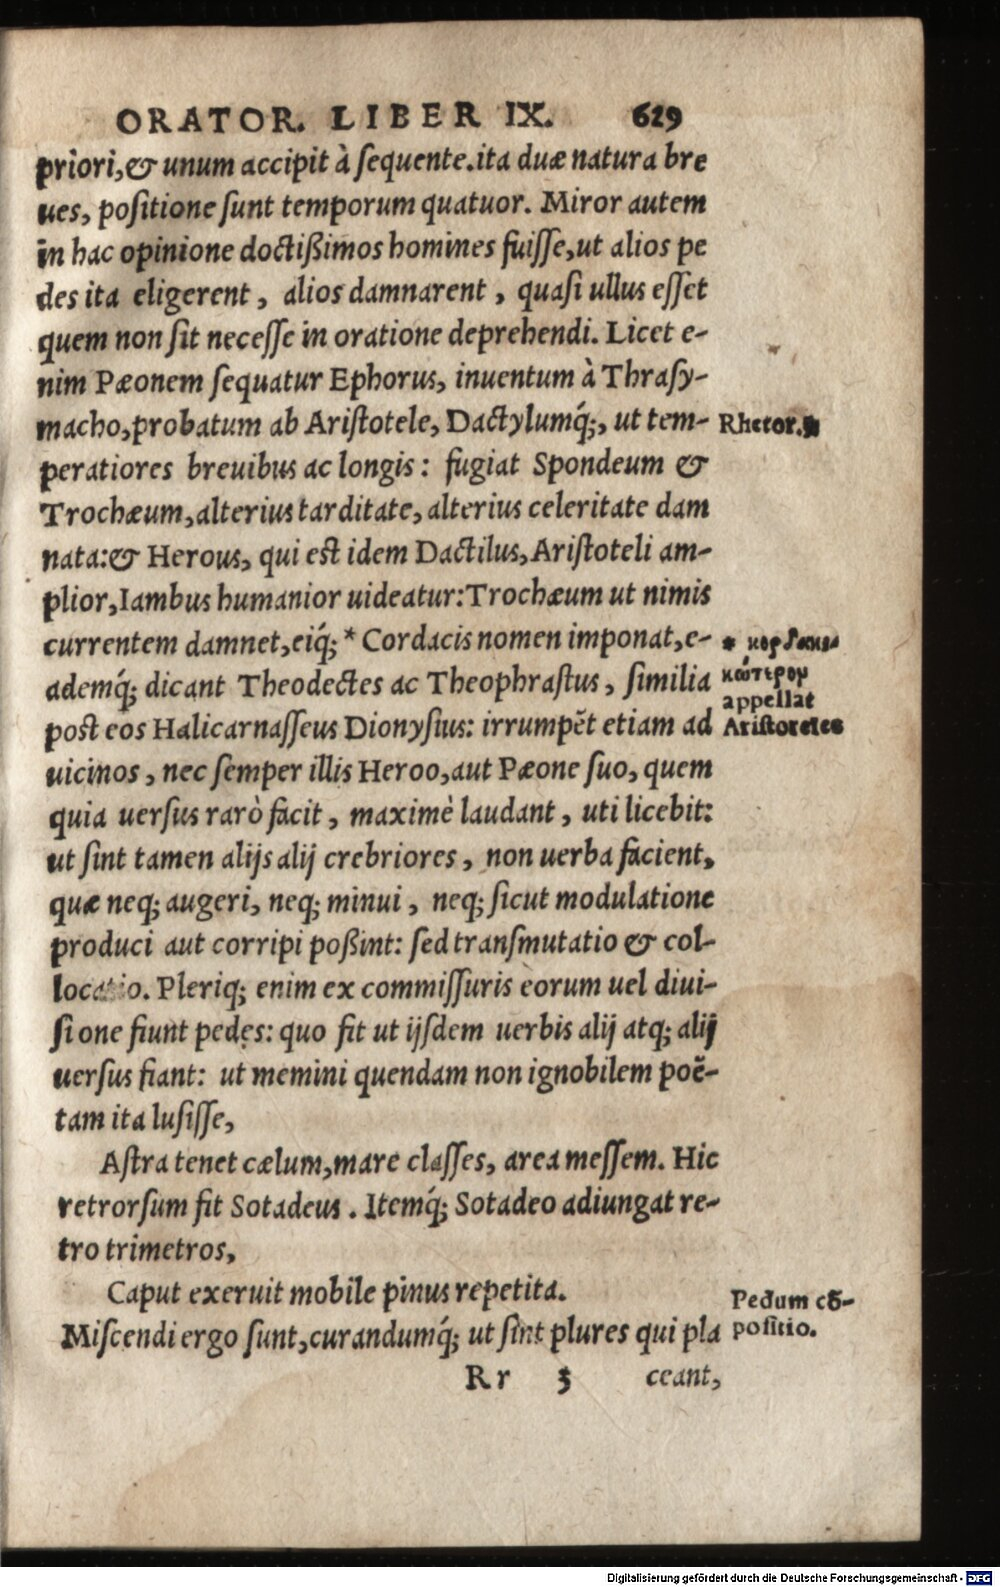 ORATOR. LIBER IX. 629
priori,& unum accipit à sequente.ita duæ natura bre
ues, positione sunt temporum quatuor. Miror autem
in hac opinione doctißimos homines fuisse,ut alios pe
des ita eligerent, alios damnarent, quasi ullus esset
quem non sit necesse in oratione deprehendi. Licet e-
nim Pæonem sequatur Ephorus, inuentum à Thrasy-
macho,probatum ab Aristotele, Dactylumq́;, ut tem-
Rhetor.
peratiores breuibus ac longis: fugiat Spondeum &
Trochæum,alterius tarditate,alterius celeritate dam
nata:& Herous, qui est idem Dactilus,Aristoteli am-
plior,Iambus humanior uideatur:Trochæum ut nimis
currentem damnet,eiq́;* Cordacis nomen imponat,e-
ademq́; dicant Theodectes ac Theophrastus, similia
post eos Halicarnasseus Dionysius: irrumpēt etiam ad
* κορδακι-
κώτερον
appellat
Aristoteles
uicinos, nec semper illis Heroo,aut Pæone suo, quem
quia uersus rarò facit, maximè laudant, uti licebit:
ut sint tamen alijs alij crebriores, non uerba facient,
quæ neq; augeri, neq; minui, neq; sicut modulatione
produci aut corripi poßint: sed transmutatio & col-
locatio. Pleriq; enim ex commissuris eorum uel diui-
sione fiunt pedes: quo fit ut ijsdem uerbis alij atq; alij
uersus fiant: ut memini quendam non ignobilem poë-
tam ita lusisse,
Astra tenet cælum,mare classes, area messem. Hic
retrorsum fit Sotadeus. Itemq́; Sotadeo adiungat re-
tro trimetros,
Caput exeruit mobile pinus repetita.
Miscendi ergo sunt,curandumq́; ut sint plures qui pla
Pedum cō-
positio.
Rr 3 ceant,
Digitalisierung gefördert durch die Deutsche Forschungsgemeinschaft - DFG